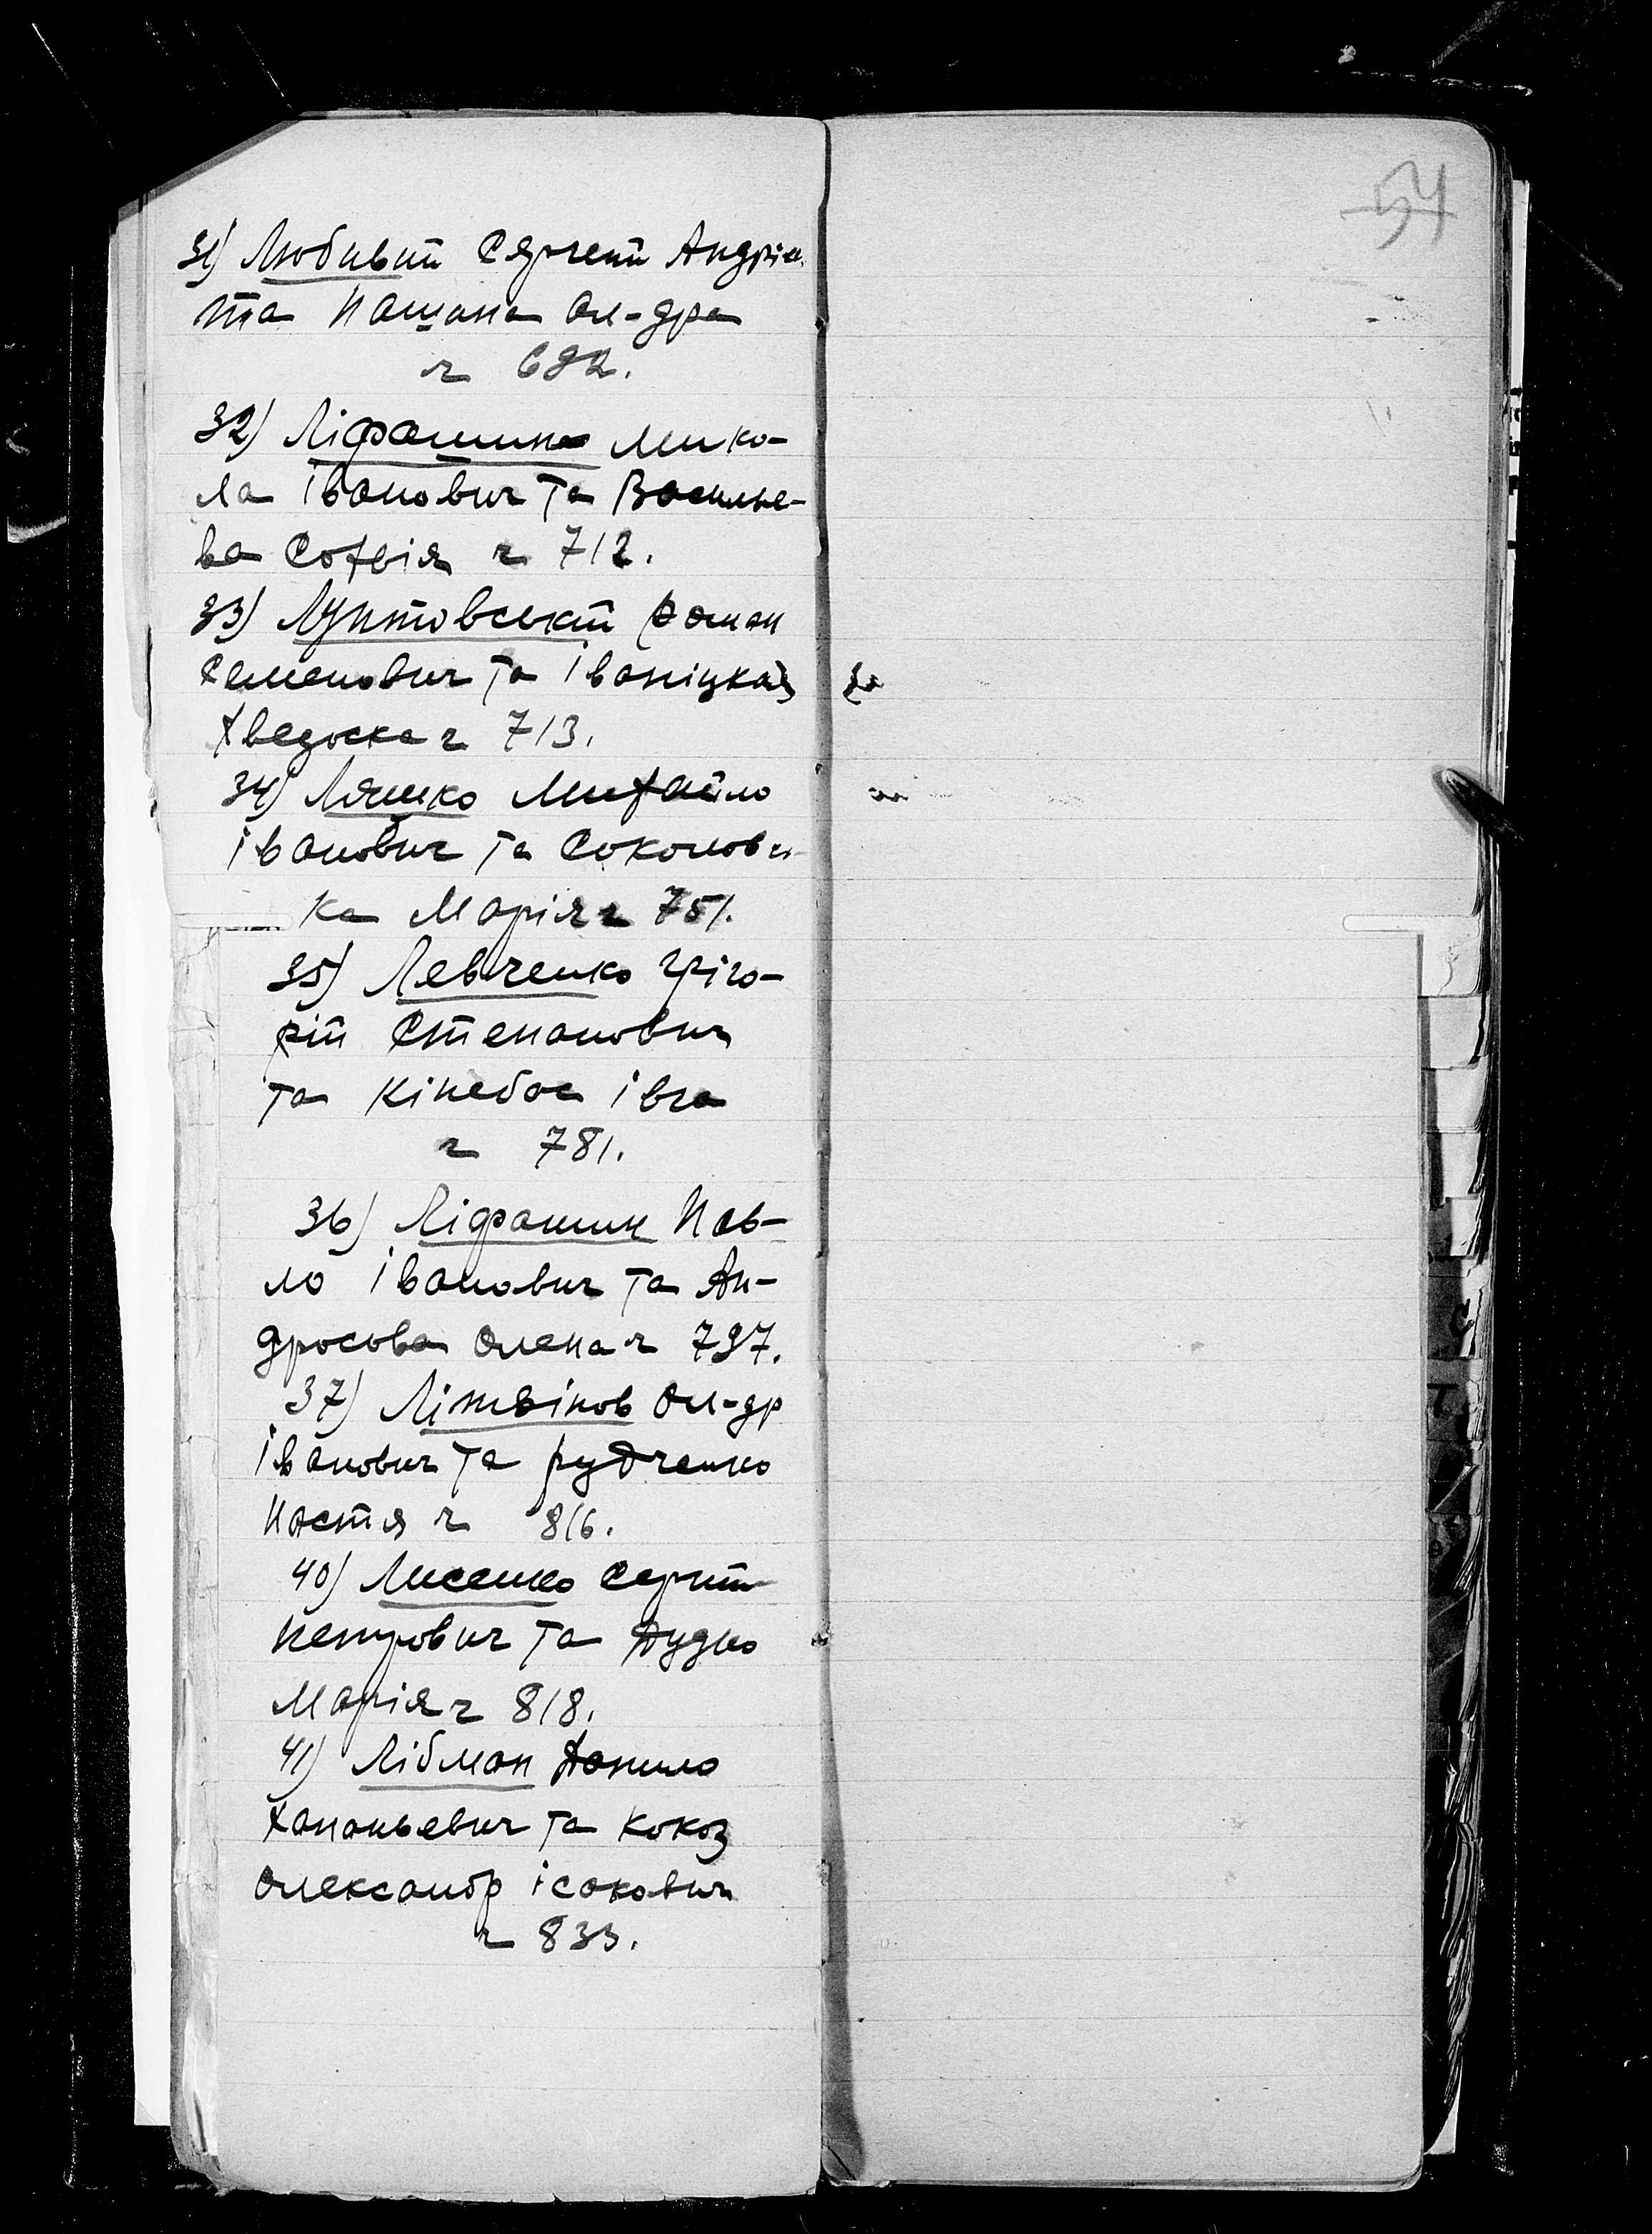 54
31) Любивий Сергей Андрі.
та Пашина Ол-дра
ч 692.
32) Ліфашин Мико-
ла Іванович та Василье-
ва Софія ч 712.
33) Лунтовський Роман
Семенович та Іваніцкая
Авдоська ч 713.
34) Ляшко Михайло
Іванович та Соколовсь
ка Марія ч 751.
35) Левченко Гріго-
рій Степанович
та Кінебас Івга
ч 781.
36) Ліфашин Пав-
ло Іванович та Ан-
дросова Олена ч 797.
37) Літвінов Ол-др
Іванович та Рудченко
Настя ч 816.
40) Лисенко Сергій
Петрович та Дудко
Марія ч 818.
41) Лібман Данило
Хананьевич та Кокоз
Олександр Ісакович
ч 833.